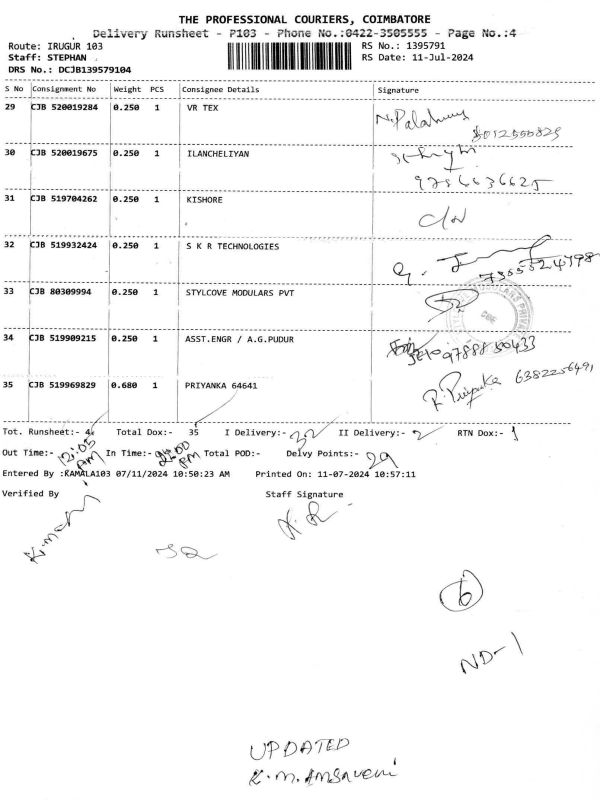 THE PROFESSIONAL COURIERS, COIMBATORE
Delivery Runsheet - P103 - Phone No.:0422-3505555 - Page No.:4
Route: IRUGUR 103 RS No.: 1395791
Staff: STEPHAN RS Date: 11-Jul-2024
DRS No.: DCJB139579104
S No Consignment No Weight PCS Consignee Details Signature
29 CJB 520019284 0.250 1 VR TEX
30 CJB 520019675 0.250 1 ILANCHELIYAN
9756636625
31 CJB 519704262 0.250 1 KISHORE
32 CJB 519932424 0.250 1 S K R TECHNOLOGIES
7355524798
33 CJB 80309994 0.250 1 STYLCOVE MODULARS PVT
34 CJB 519909215 0.250 1 ASST.ENGR / A.G.PUDUR
9788850433
35 CJB 519969829 0.680 1 PRIYANKA 64641 R. Priyanka
Tot. Runsheet:- 4 Total Dox:- 35 I Delivery:- 32 II Delivery:- 2 RTN Dox:- 1
Out Time:- 12:05 AM In Time:- PM Total POD:- Delvy Points:- 29
Entered By :KAMALA103 07/11/2024 10:50:23 AM Printed On: 11-07-2024 10:57:11
Verified By Staff Signature
6
ND-1
UPDATED
K.M. Amsaveni